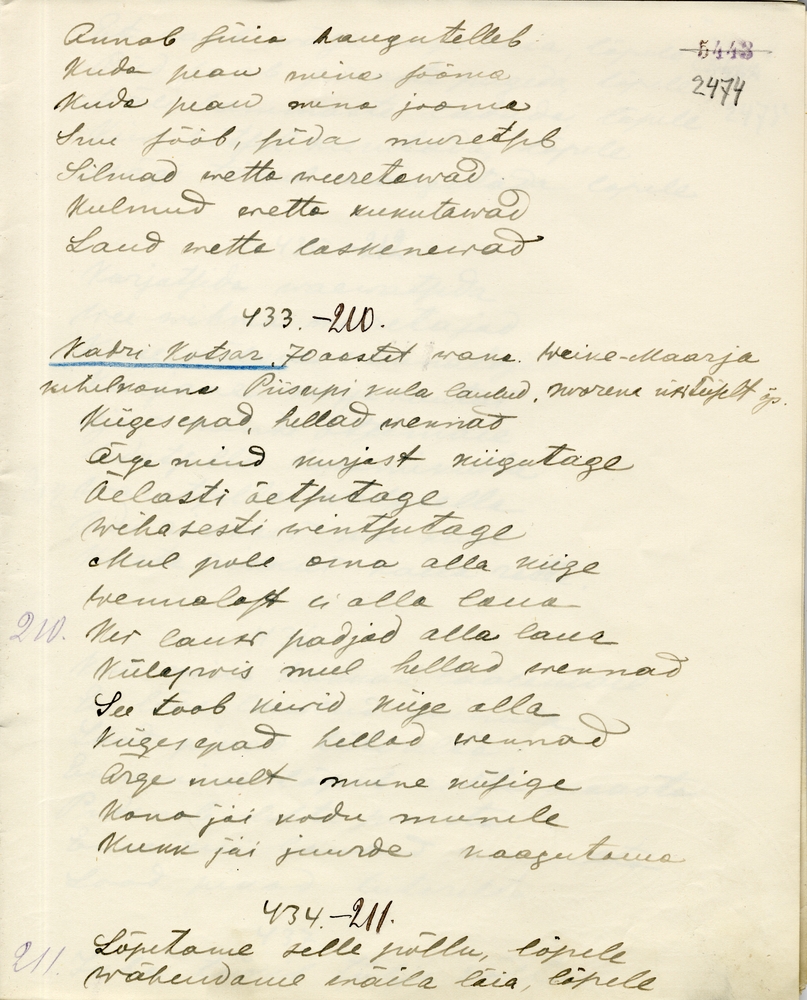 Annab süüa haugutelleb
5443
Kuda pean mina sööma
2474
Kuda pean mina jooma
Suu sööb, süda muretseb
Silmad wetta weeretawad
Kulmud wetta kukutawad
Laud wetta laskenewad
433.-210.
Kadri Kotsar, 70 aastat wana. Weike-Maarja
kihelkonna Piisupi küla lauhed, noorena
Kiigesepad, hellad wennad
Ärge mind kurjast kiigutage
Öelasti öetsutage
Wihasesti wintsutage
Mul pole oma alla kiige
Wennalast ei alla laua
210. Kes lauas padjad alla laua
Külapois meel hellad wennad
See toob kiwid kiige alla
Kiigesepad hellad wennad
Ärge meelt mune küsige
Kana jäi kodu munele
Kukk jäi juurde kaagutama
434.-211.
Lõpetame selle põllu, lõpele
211. Wähendame wäila läia, lõpele